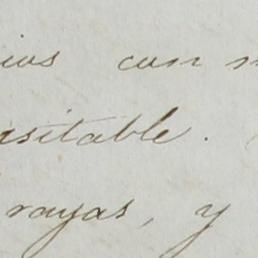 ios con
sitable.
rayas, y